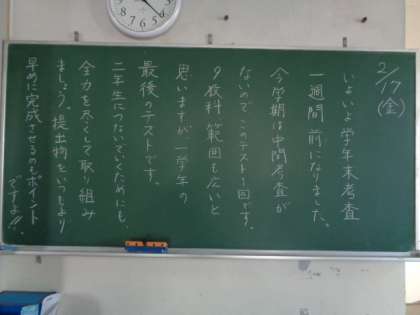 2/17(金)
いよいよ学年末考査
一週間前になりました。
今学期は中間考査が
ないのでこのテスト1回です。
9教科 範囲も広いと
思いますが、一学年の
最後のテストです。
二年生につないでいくためにも、
全力を尽くして取り組み
ましょう。提出物をいつもより
早めに完成させるのもポイント
ですよ!!